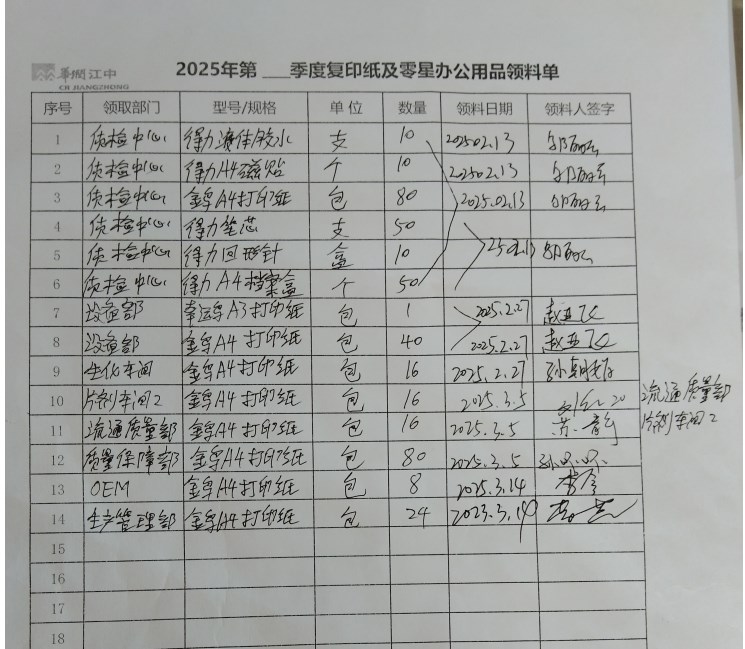 華潤江中
CR JIANGZHONG
2025年第 ___季度复印纸及零星办公用品领料单
序号 领取部门 型号/规格 单位 数量 领料日期 领料人签字
1 质检中心 得力液体胶水 支 10 2025.02.13
2 质检中心 得力A4磁贴 个 10 2025.02.13
3 质检中心 金丝A4打印纸 包 80 2025.02.13
4 质检中心 得力笔芯 支 50
5 质检中心 得力回形针 盒 10 25.02.13
6 质检中心 得力A4档案盒 个 50
7 设备部 A3打印纸 包 1 2025.2.27
8 设备部 A4打印纸 包 40 2025.2.27
9 生化车间 A4打印纸 包 16 2025.2.27
10 片剂车间2 A4打印纸 包 16 2025.3.5 流通质量部
11 流通质量部 A4打印纸 包 16 2025.3.5 片剂车间2
12 质量保障部 A4打印纸 包 80 2025.3.5
13 OEM A4打印纸 包 8 2025.3.14
14 生产管理部 A4打印纸 包 24 2025.3.14
15
16
17
18